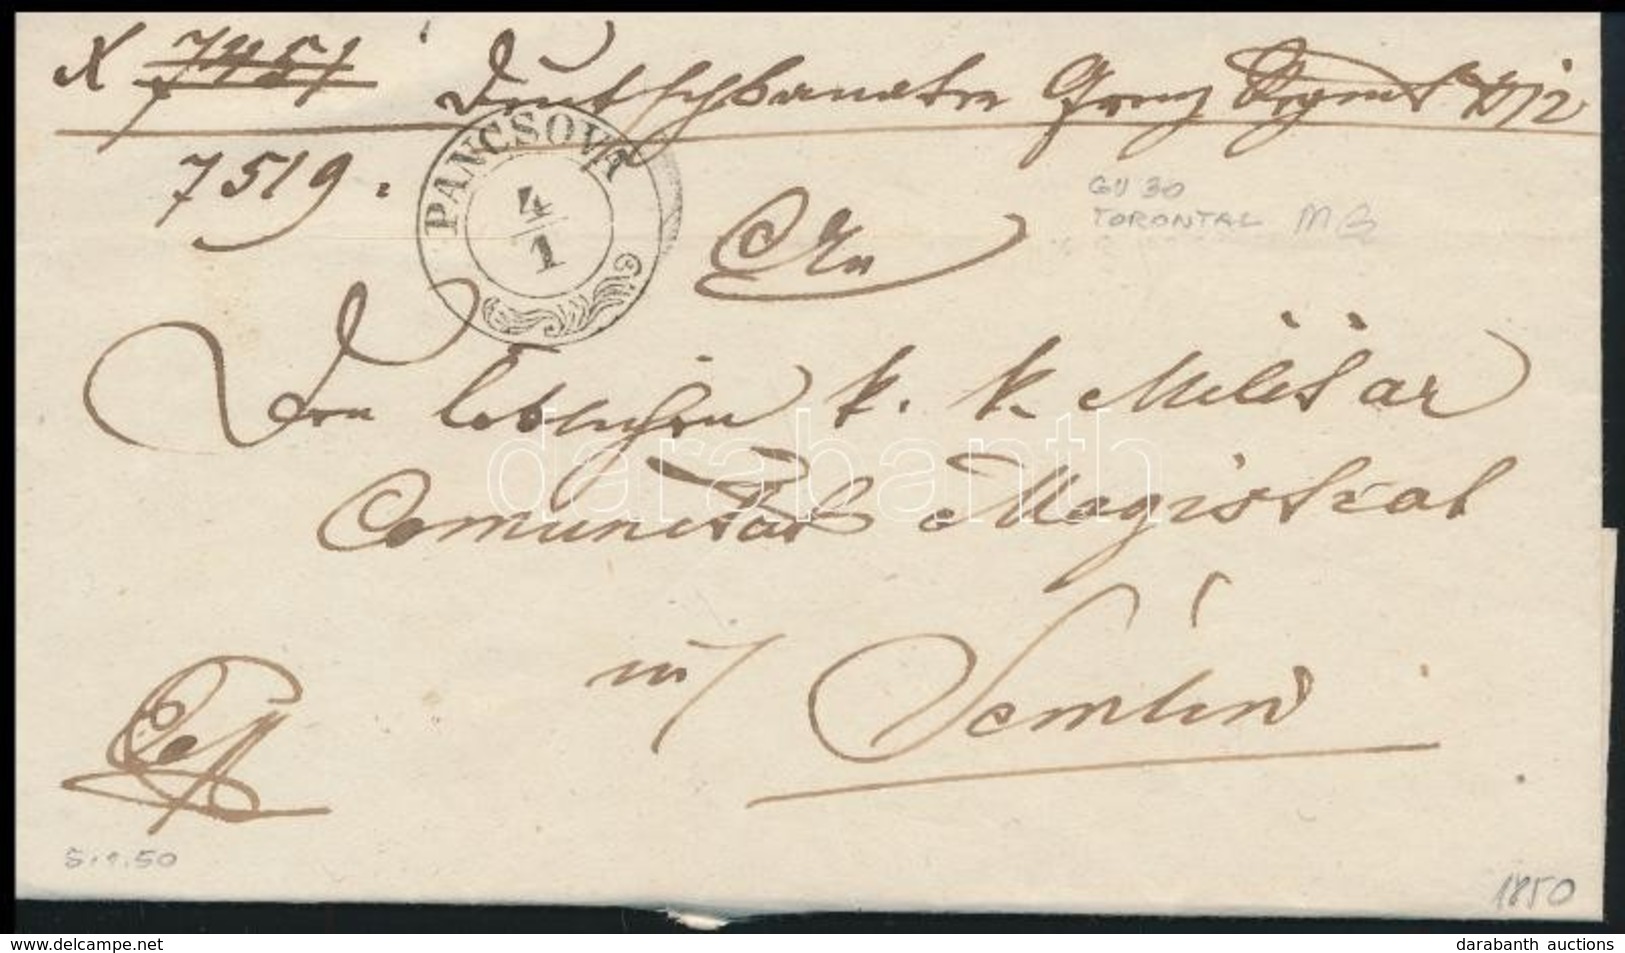 N 7451 Deutschbanater Grenz Regmt No 12
7519.
PANCSOVA
4/1
GU 30
TORONTAL MB
An
Den löblichen k. k. Militär
Comunitäts Magistrat
in/ Semlin
5.1.50
1850
darabanth
www.delcampe.net
darabanth auctions